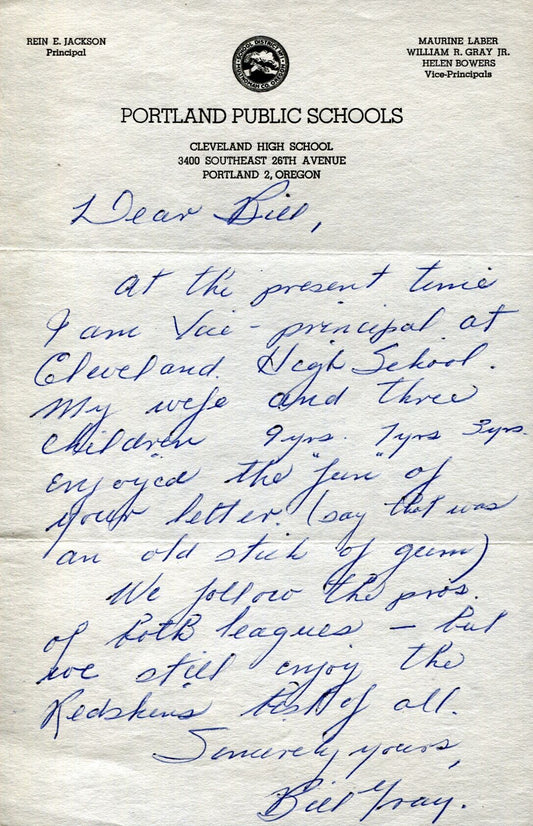 REIN E. JACKSON
Principal
MAURINE LABER
WILLIAM R. GRAY JR.
HELEN BOWERS
Vice-Principals
SCHOOL DISTRICT Nº1
MULTNOMAH CO. OREGON
PORTLAND PUBLIC SCHOOLS
CLEVELAND HIGH SCHOOL
3400 SOUTHEAST 26TH AVENUE
PORTLAND 2, OREGON
Dear Bill,
At the present time
I am Vice-principal at
Cleveland High School.
My wife and three
children 9yrs. 7yrs 3yrs.
enjoyed the "fun" of
your letter. (say that was
an old stick of gum)
We follow the pros.
of both leagues - but
we still enjoy the
Redskins best of all.
Sincerely yours,
Bill Gray.